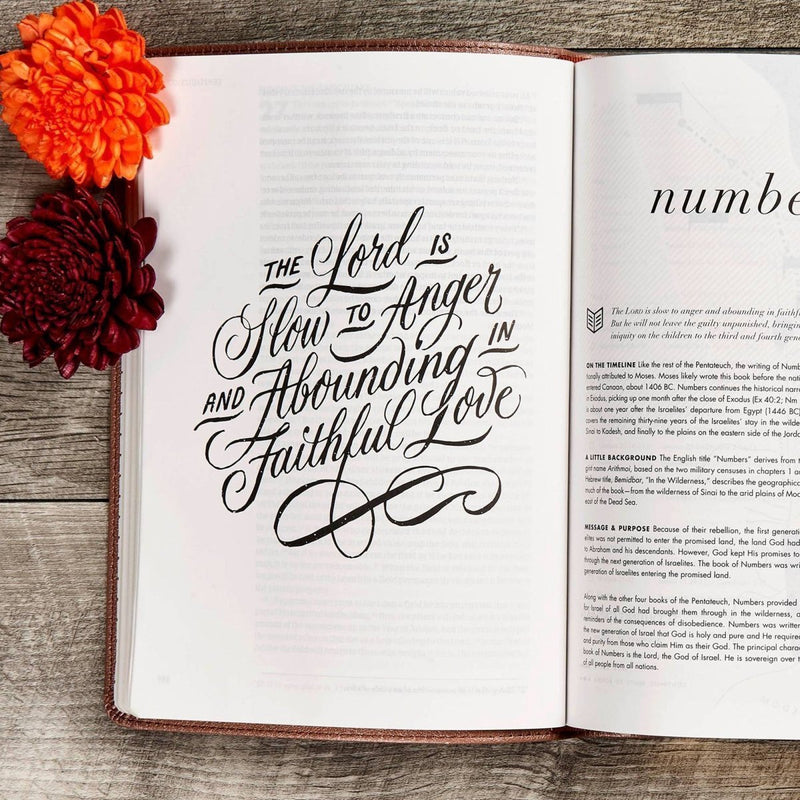 THE Lord IS
Slow TO Anger
AND Abounding IN
Faithful Love
numbe
The LORD is slow to anger and abounding in faithf
But he will not leave the guilty unpunished, bringin
iniquity on the children to the third and fourth gene
ON THE TIMELINE Like the rest of the Pentateuch, the writing of Numb
tionally attributed to Moses. Moses likely wrote this book before the nati
entered Canaan, about 1406 BC. Numbers continues the historical narr
in Exodus, picking up one month after the close of Exodus (Ex 40:2; Nm
is about one year after the Israelites' departure from Egypt (1446 BC)
covers the remaining thirty-nine years of the Israelites' stay in the wilde
Sinai to Kadesh, and finally to the plains on the eastern side of the Jorda
A LITTLE BACKGROUND The English title "Numbers" derives from t
gint name Arithmoi, based on the two military censuses in chapters 1 an
Hebrew title, Bemidbar, "In the Wilderness," describes the geographica
much of the book—from the wilderness of Sinai to the arid plains of Moa
east of the Dead Sea.
MESSAGE & PURPOSE Because of their rebellion, the first generati
elites was not permitted to enter the promised land, the land God had
to Abraham and his descendants. However, God kept His promises to
through the next generation of Israelites. The book of Numbers was wri
generation of Israelites entering the promised land.
Along with the other four books of the Pentateuch, Numbers provided
for Israel of all God had brought them through in the wilderness, a
reminders of the consequences of disobedience. Numbers was written
the new generation of Israel that God is holy and pure and He require
and purity from those who claim Him as their God. The principal chara
book of Numbers is the Lord, the God of Israel. He is sovereign over t
of all people from all nations.